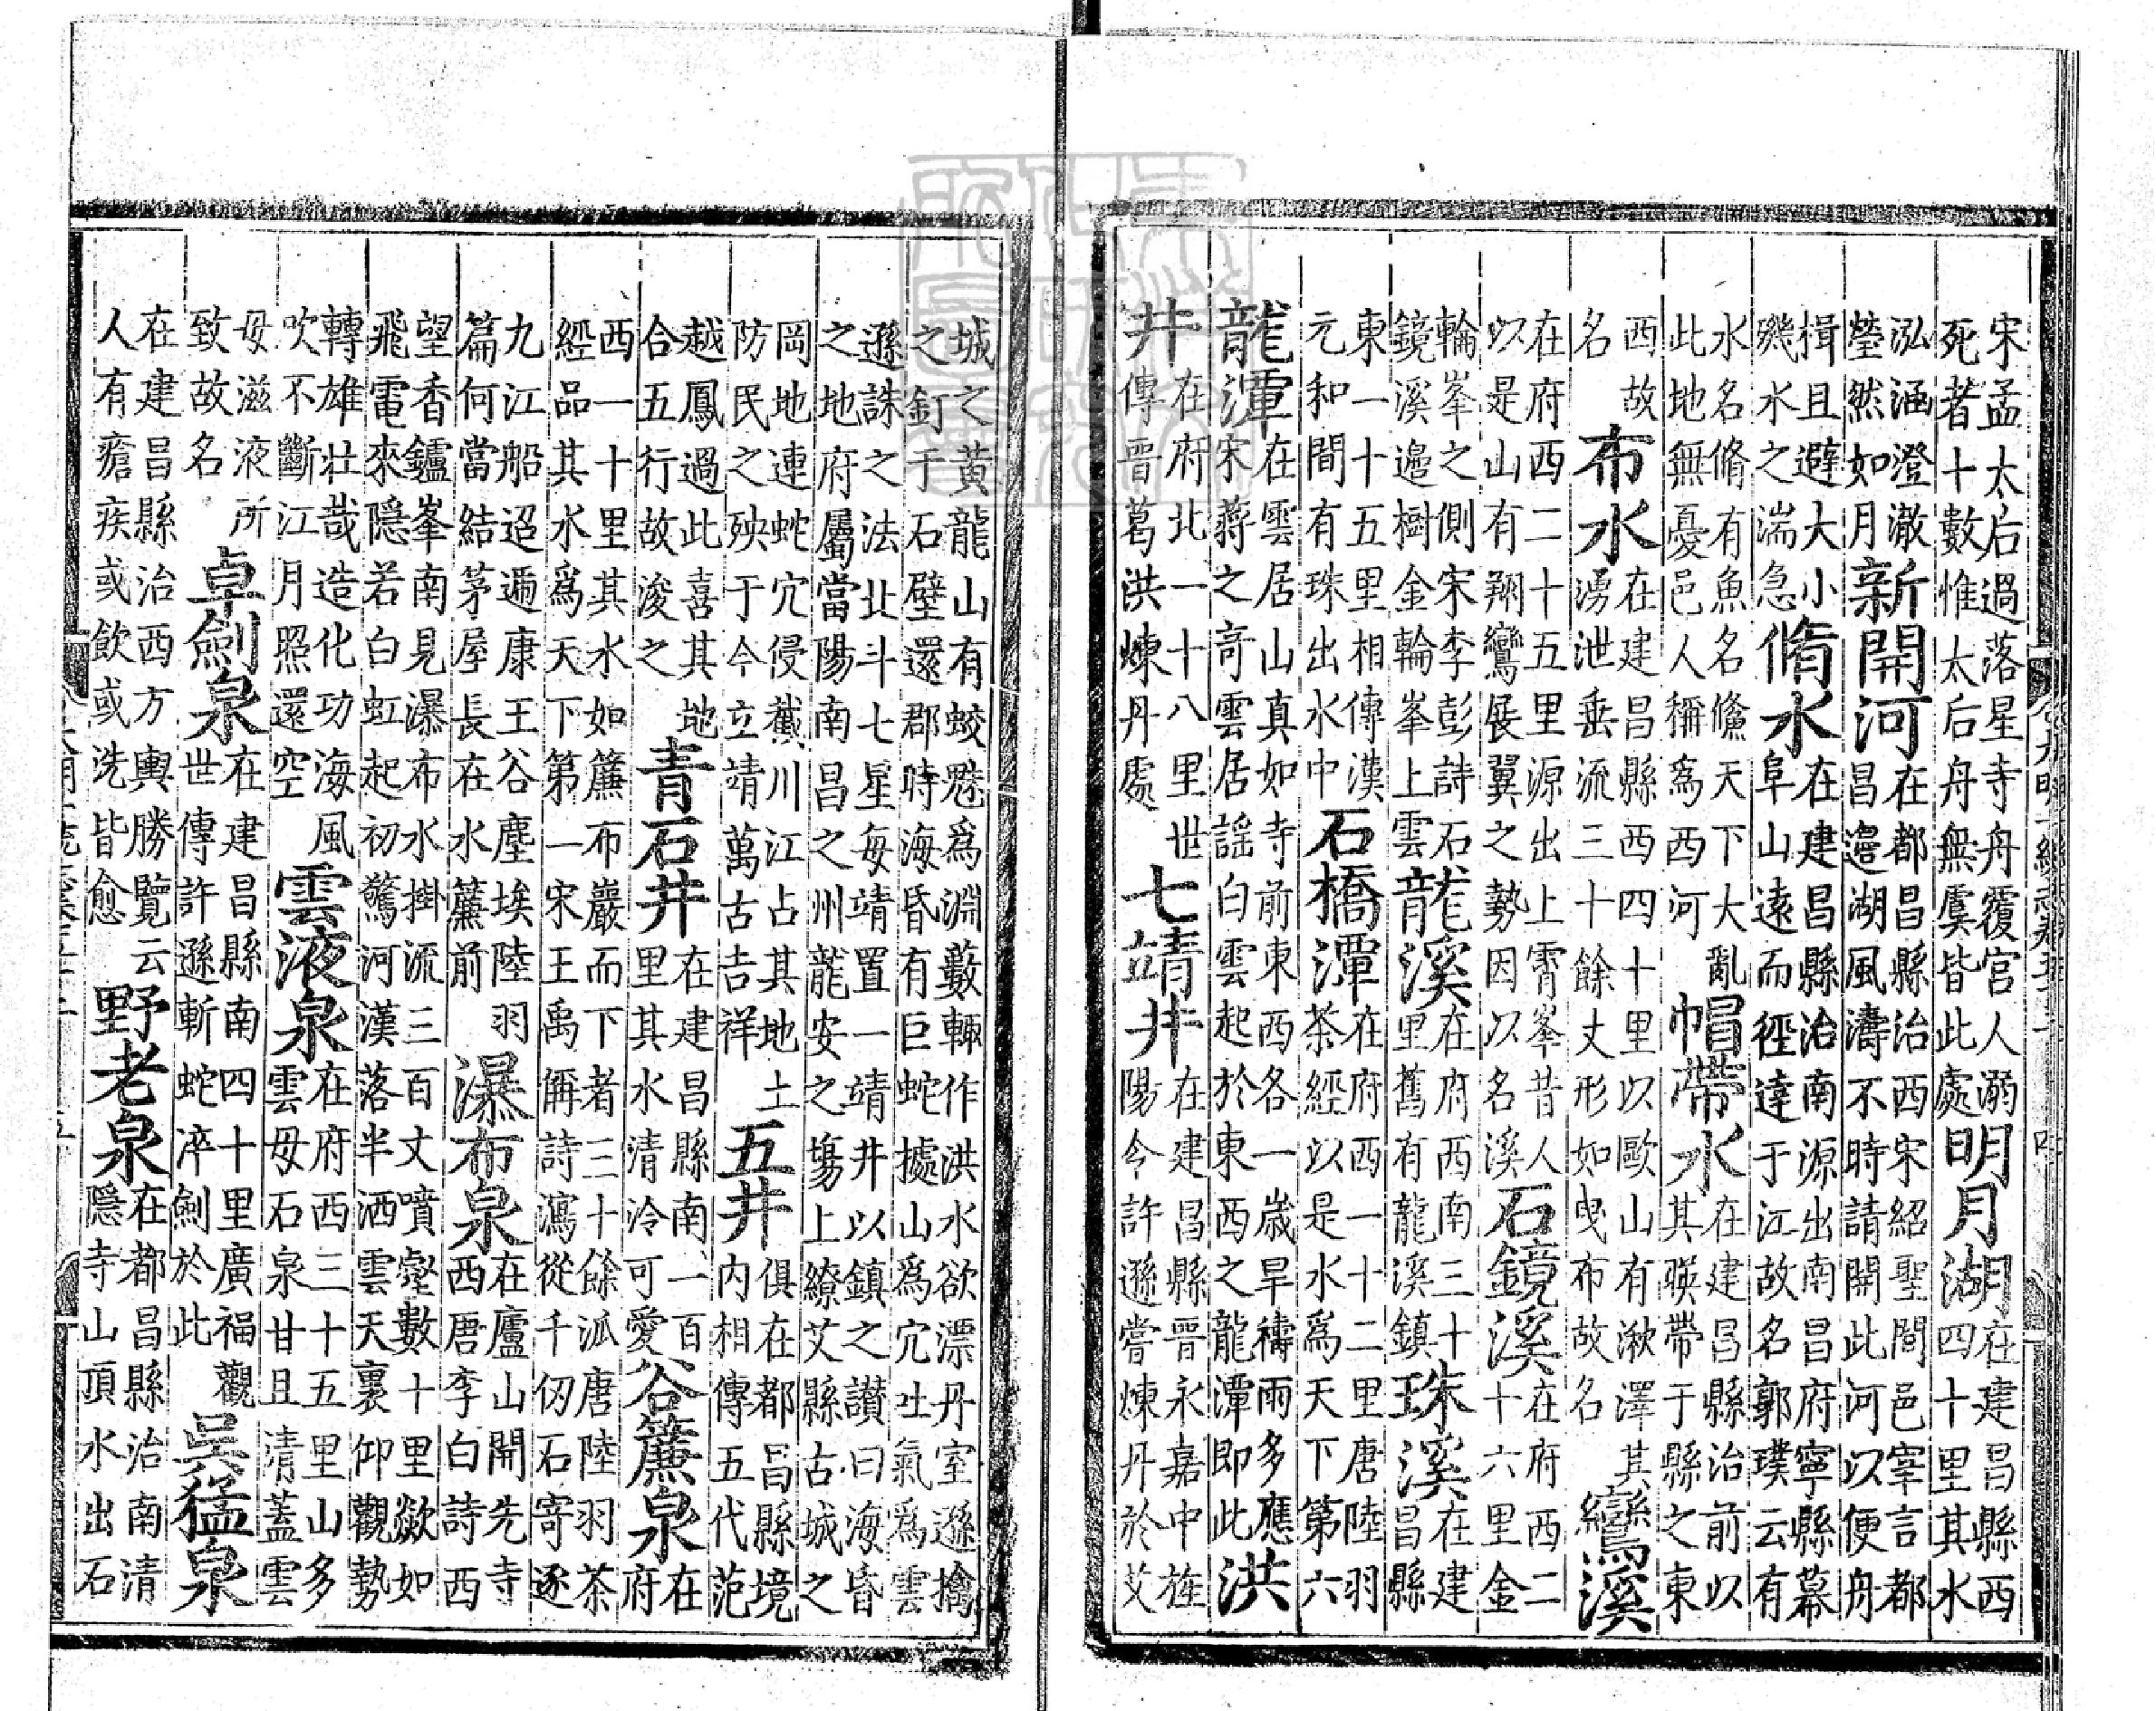 宋孟太后過落星寺舟覆宮人溺
死者十數惟太后舟無虞皆此處
明月湖
在建昌縣西
四十里其水
泓涵澄澈
瑩然如月
新開河
在都昌縣治西宋紹聖間邑宰言都
昌邉湖風濤不時請開此河以便舟
揖且避大小
磯水之湍急
脩水
在建昌縣治南源出南昌府寧縣幕
阜山遠而徑達于江故名郭璞云有
水名脩有魚名鯈天下大亂
此地無憂邑人稱為西河
帽帶水
在建昌縣治前以
其聮帶于縣之東
西故
名
布水
在建昌縣西四十里以歐山有潄澤其
湧泄垂流三十餘丈形如曳布故名
鸞溪
在府西二十五里源出上霄峯昔人
以是山有翔鸞展翼之勢因以名溪
石鏡溪
在府西二
十六里金
輪峯之側宋李彭詩石
鏡溪邉樹金輪峯上雲
龍溪
在府西南三十
里舊有龍溪鎮
珠溪
在建
昌縣
東一十五里相傳漢
元和間有珠出水中
石橋潭
在府西一十二里唐陸羽
茶經以是水為天下第六
龍潭
在雲居山真如寺前東西各一歲旱禱雨多應
宋蔣之竒雲居謠白雲起於東西之龍潭即此
洪
井
在府北一十八里世
傳晉葛洪煉丹處
七靖井
在建昌縣晉永嘉中旌
陽令許遜嘗煉丹於艾
城之黄龍山有蛟魅為淵藪輙作洪水欲漂丹室遜擒
之釘于石壁還郡時海昏有巨蛇據山為穴吐氣為雲
遜誅之法北斗七星毎靖置一靖井以鎮之讃曰海昏
之地府屬當陽南昌之州龍安之塲上繚艾縣古城之
岡地連蛇穴侵川江占其地土
防民之殃于今立靖萬古吉祥
五井
俱在都昌縣境
内相傳五代范
越鳳過此喜其地
合五行故浚之
青石井
在建昌縣南一百
里其水清泠可愛
谷簾泉
在
府
西一十里其水如簾布巖而下者三十餘派唐陸羽茶
經品其水為天下第一宋王禹偁詩瀉從千仞石寄逐
九江船迢遞康王谷塵埃陸羽
篇何當結茅屋長在水簾前
瀑布泉
在廬山開先寺
西唐李白詩西
望香鑪峯南見瀑布水掛流三百丈噴壑數十里歘如
飛電來隱若白虹起初驚河漢落半洒雲天裏仰觀勢
轉雄壯哉造化功海風
吹不斷江月照還空
雲液泉
在府西三十五里山多
雲母石泉甘且清蓋雲
母滋液所
致故名
卓劍泉
在建昌縣南四十里廣福觀
世傳許遜斬蛇淬劍於此
吳猛泉
在建昌縣治西方輿勝覽云
人有瘡疾或飲或洗皆愈
野老泉
在都昌縣治南清
隱寺山頂水出石